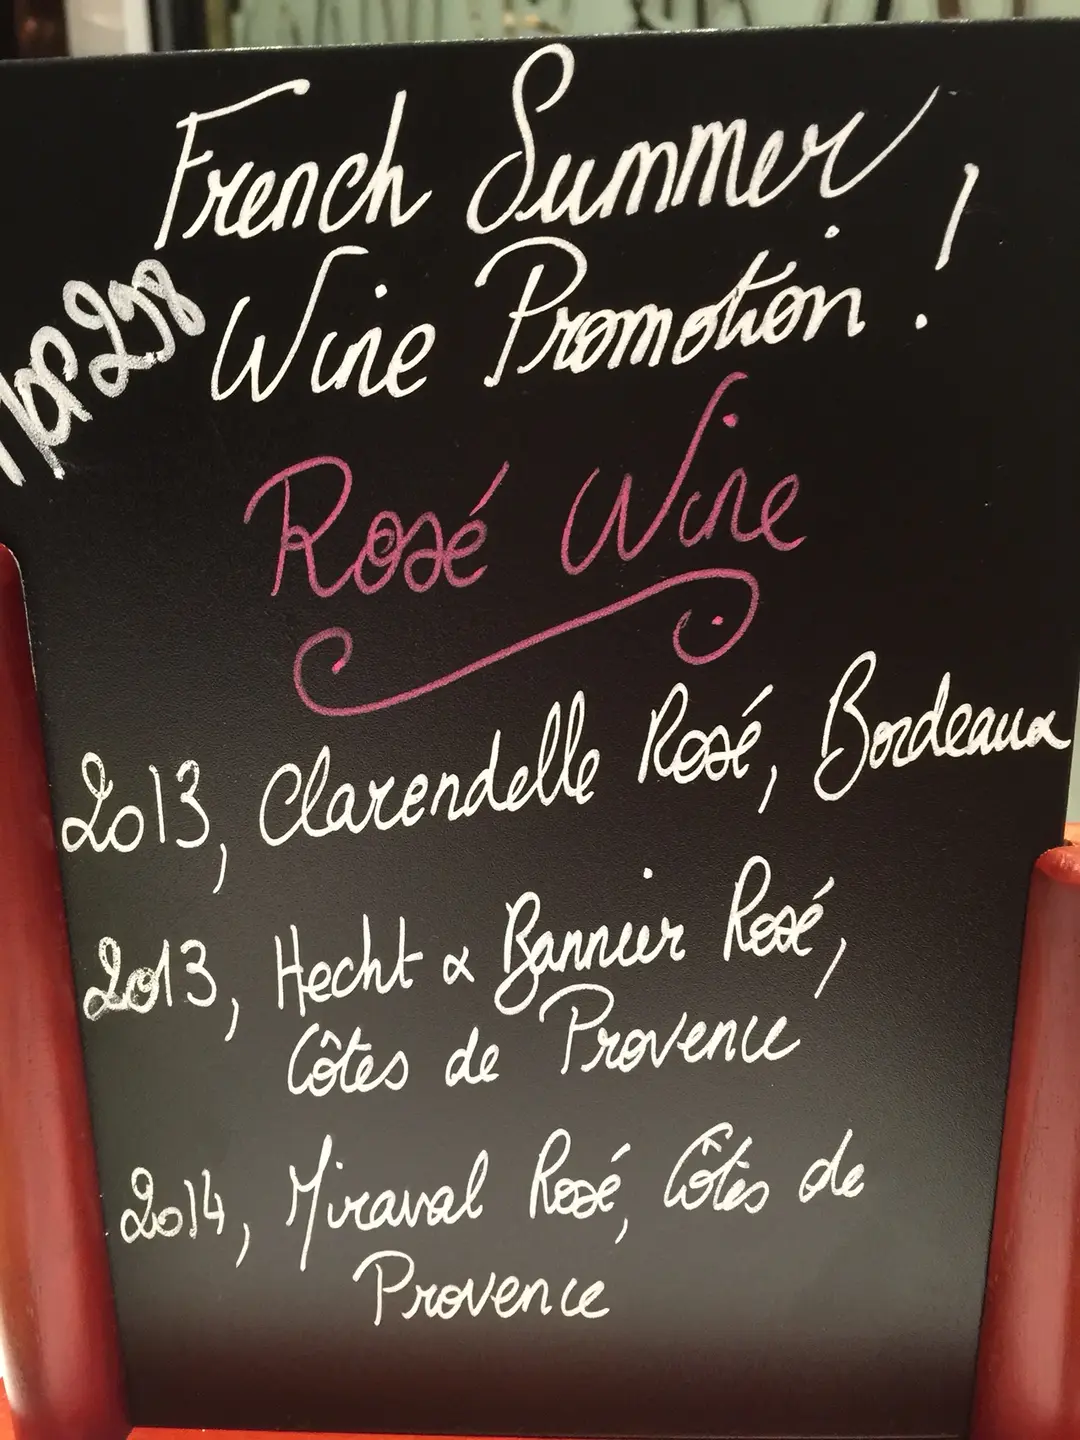 French Summer
Wine Promotion!
MOP 298
Rosé Wine
2013, Clarendelle Rosé, Bordeaux
2013, Hecht & Bannier Rosé,
Côtes de Provence
2014, Miraval Rosé, Côtes de
Provence